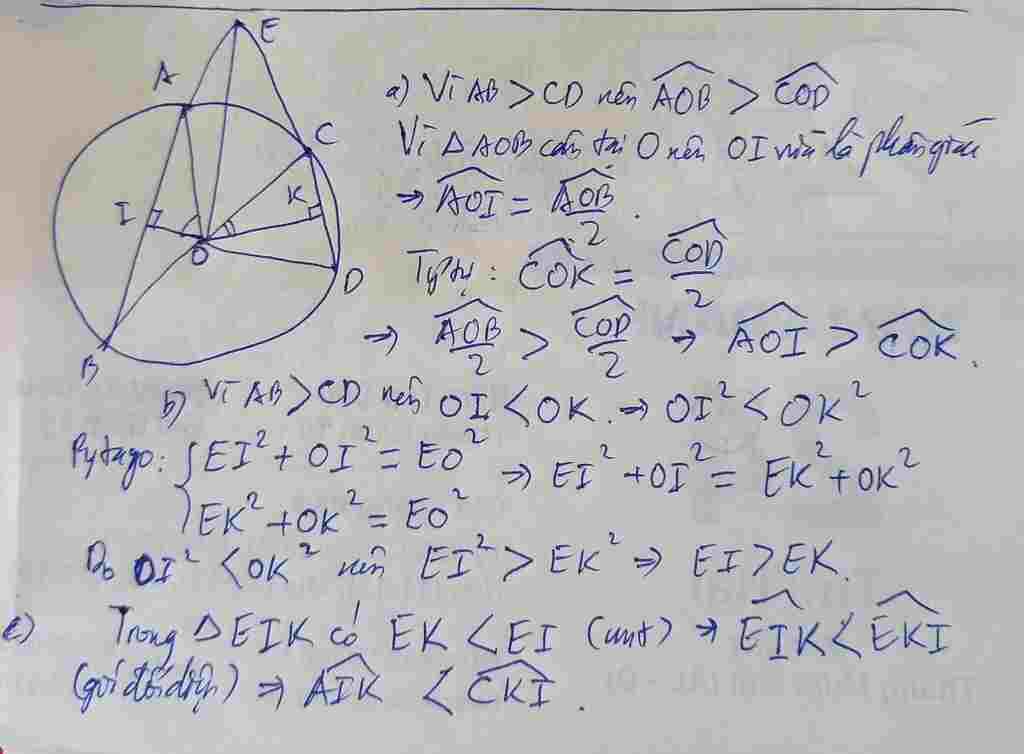 E
A
C
I
K
O
D
B
a) Vì AB > CD nên \widehat{AOB} > \widehat{COD}
Vì △AOB cân tại O nên OI vừa là phân giác
⇒ \widehat{AOI} = \frac{\widehat{AOB}}{2}.
Tự tự: \widehat{COK} = \frac{\widehat{COD}}{2}
⇒ \frac{\widehat{AOB}}{2} > \frac{\widehat{COD}}{2} ⇒ \widehat{AOI} > \widehat{COK}.
b) Vì AB > CD nên OI < OK. ⇒ OI² < OK²
Pytago: { EI² + OI² = EO² ⇒ EI² + OI² = EK² + OK²
EK² + OK² = EO²
Do OI² < OK² nên EI² > EK² ⇒ EI > EK.
c) Trong △EIK có EK < EI (cmt) ⇒ \widehat{EIK} < \widehat{EKI}
(góc đối diện) ⇒ \widehat{AIK} < \widehat{CKI}.